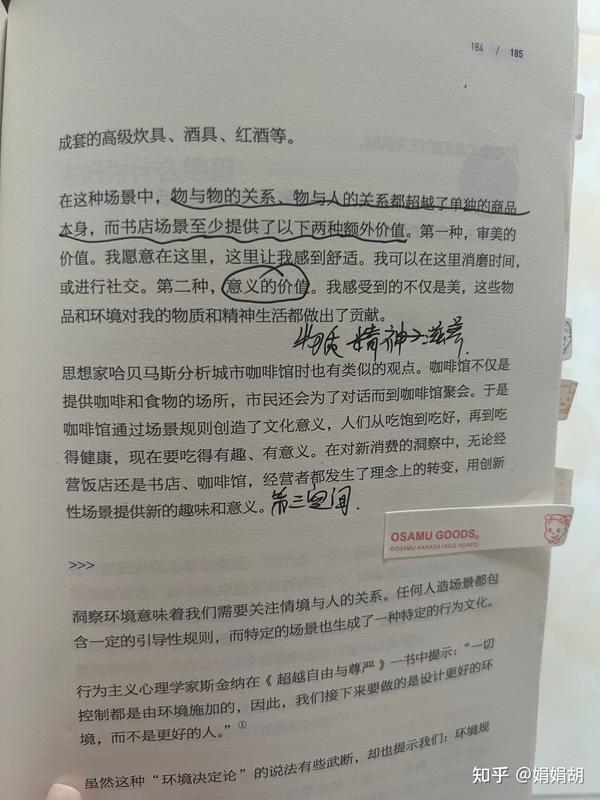 184 / 185
成套的高级炊具、酒具、红酒等。
在这种场景中，物与物的关系、物与人的关系都超越了单独的商品
本身，而书店场景至少提供了以下两种额外价值。第一种，审美的
价值。我愿意在这里，这里让我感到舒适。我可以在这里消磨时间，
或进行社交。第二种，意义的价值。我感受到的不仅是美，这些物
品和环境对我的物质和精神生活都做出了贡献。
物质 精神之滋养.
思想家哈贝马斯分析城市咖啡馆时也有类似的观点。咖啡馆不仅是
提供咖啡和食物的场所，市民还会为了对话而到咖啡馆聚会。于是
咖啡馆通过场景规则创造了文化意义，人们从吃饱到吃好，再到吃
得健康，现在要吃得有趣、有意义。在对新消费的洞察中，无论经
营饭店还是书店、咖啡馆，经营者都发生了理念上的转变，用创新
性场景提供新的趣味和意义。第三空间.
OSAMU GOODS®
©OSAMU HARADA / KOJI HONPO
>>>
洞察环境意味着我们需要关注情境与人的关系。任何人造场景都包
含一定的引导性规则，而特定的场景也生成了一种特定的行为文化。
行为主义心理学家斯金纳在《超越自由与尊严》一书中提示：“一切
控制都是由环境施加的，因此，我们接下来要做的是设计更好的环
境，而不是更好的人。”①
虽然这种“环境决定论”的说法有些武断，却也提示我们：环境规
知乎 @娟娟胡